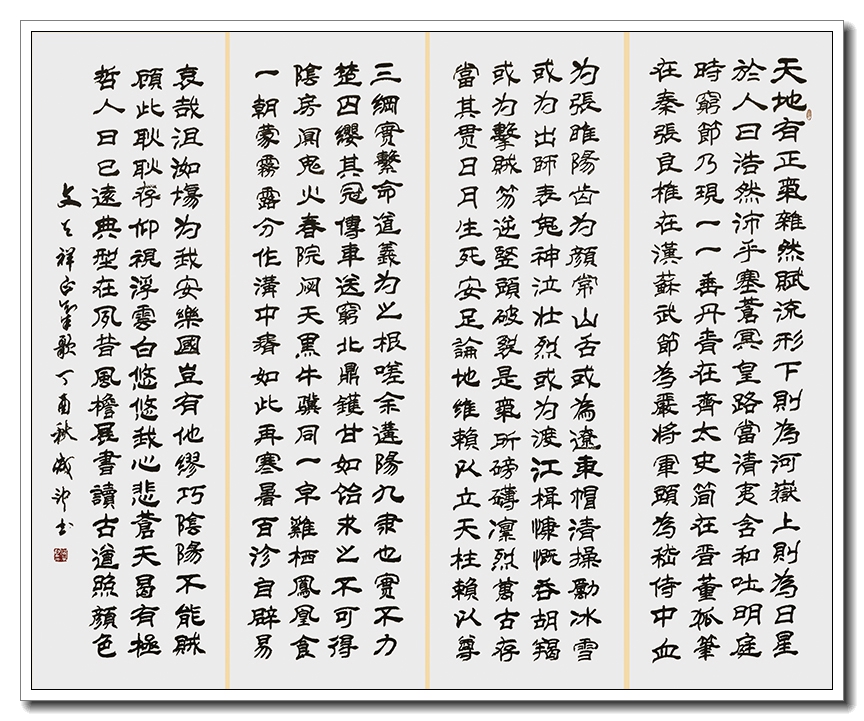 天地有正氣雜然賦流形下則為河嶽上則為日星
於人曰浩然沛乎塞蒼冥皇路當清夷含和吐明庭
時窮節乃現一一垂丹青在齊太史簡在晉董狐筆
在秦張良椎在漢蘇武節為嚴將軍頭為嵇侍中血
为張睢陽齒为顏常山舌或為遼東帽清操勵冰雪
或为出師表鬼神泣壯烈或为渡江楫慷慨吞胡羯
或为擊賊笏逆豎頭破裂是氣所磅礴凜烈萬古存
當其贯日月生死安足論地維賴以立天柱賴以尊
三綱實繫命道義为之根嗟余遘陽九隶也實不力
楚囚纓其冠傳車送窮北鼎鑊甘如飴求之不可得
陰房闃鬼火春院閟天黑牛驥同一皁雞栖鳳凰食
一朝蒙霧露分作溝中瘠如此再寒暑百沴自辟易
哀哉沮洳場为我安樂國豈有他繆巧陰陽不能賊
顧此耿耿存仰視浮雲白悠悠我心悲蒼天曷有極
哲人日已遠典型在夙昔風檐展書讀古道照顏色
文天祥正氣歌丁酉秋书